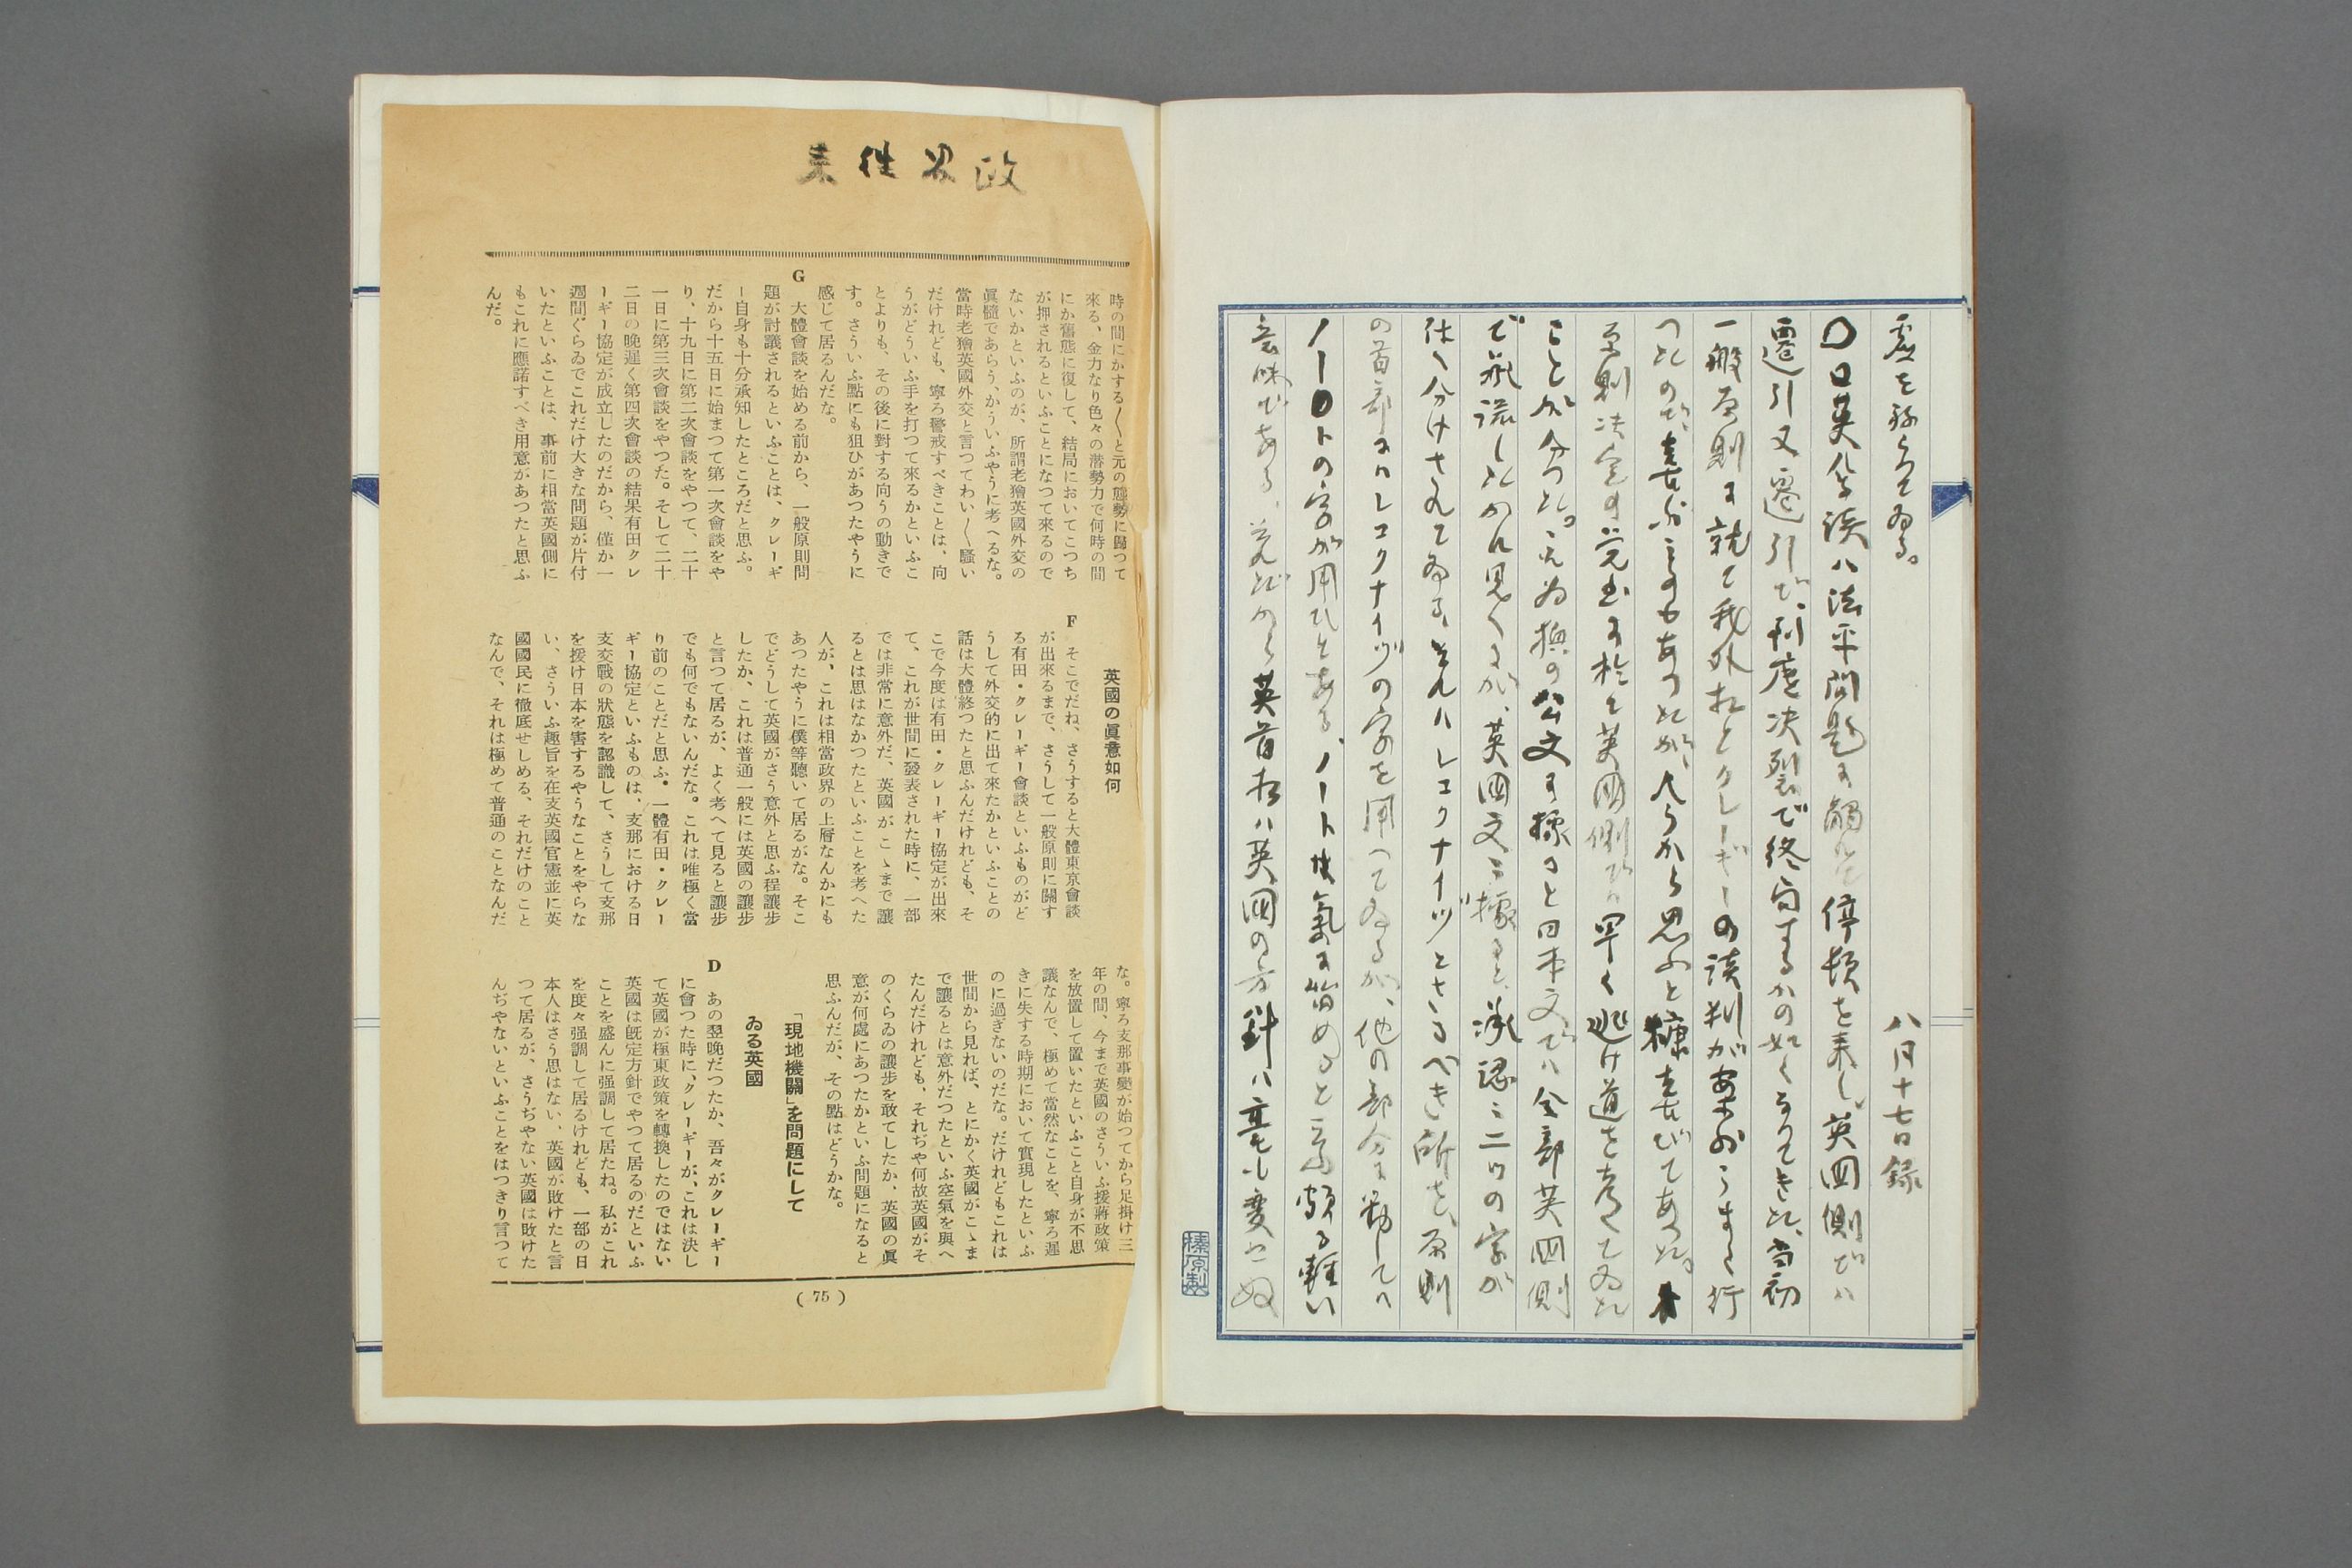 八月十七日録
〇日英会談ハ法平問題に觸れて停頓を来し、英国側でハ
遷引又遷引で、到底决裂で終局するかの如くなつてきた、当初
一般原則に就て我外相とクレーギーの談判が案外うまく行
つたので、喜ぶものもあつたが、今から思ふと糠喜びであつた。
原則决定の覚書に於て英國側でハ早く逃け道を考へてゐた
ことが分つた。交換の公文に據ると日本文でハ全部英国側
で承認したかに見へるが、英國文に據ると、承認に二つの字が
使ひ分けされてゐる、それハレコクナイヅとさるべき所を、原則
の首部にハレコクナイヅの字を用つてゐるが、他の部分に對してハ
ノートの字が用ひてある、ノートは氣に留めると云ふ頗る軽い
意味である、それだから英首相ハ英國の方針ハ毫も変らぬ
榛原製
政界往来
時の間にかする〳〵と元の態勢に歸つて
來る、金力なり色々の潛勢力で何時の間
にか舊態に復して、結局においてこつち
が押されるといふことになつて來るので
ないかといふのが、所謂老獪英國外交の
眞髓であらう、かういふやうに考へるな。
當時老獪英國外交と言つてわい〳〵騷い
だけれども、寧ろ警戒すべきことは、向
うがどういふ手を打つて來るかといふこ
とよりも、その後に對する向うの動きで
す。さういふ點にも狙ひがあつたやうに
感じて居るんだな。
G 大體會談を始める前から、一般原則問
題が討議されるといふことは、クレーギ
ー自身も十分承知したところだと思ふ。
だから十五日に始まつて第一次會談をや
り、十九日に第二次會談をやつて、二十
一日に第三次會談をやつた。そして二十
二日の晩遲く第四次會談の結果有田クレ
ーギー協定が成立したのだから、僅か一
週間ぐらゐでこれだけ大きな問題が片付
いたといふことは、事前に相當英國側に
もこれに應諾すべき用意があつたと思ふ
んだ。
英國の眞意如何
F そこでだね、さうすると大體東京會談
が出來るまで、さうして一般原則に關す
る有田・クレーギー會談といふものがど
うして外交的に出て來たかといふことの
話は大體終つたと思ふんだけれども、そ
こで今度は有田・クレーギー協定が出來
て、これが世間に發表された時に、一部
では非常に意外だ、英國がこゝまで讓
るとは思はなかつたといふことを考へた
人が、これは相當政界の上層なんかにも
あつたやうに僕等聽いて居るがな。そこ
でどうして英國がさう意外と思ふ程讓步
したか、これは普通一般には英國の讓步
と言つて居るが、よく考へて見ると讓步
でも何でもないんだな。これは唯極く當
り前のことだと思ふ。一體有田・クレー
ギー協定といふものは、支那における日
支交戰の狀態を認識して、さうして支那
を援け日本を害するやうなことをやらな
い、さういふ趣旨を在支英國官憲並に英
國國民に徹底せしめる、それだけのこと
なんで、それは極めて普通のことなんだ
な。寧ろ支那事變が始つてから足掛け三
年の間、今まで英國のさういふ援蔣政策
を放置して置いたといふこと自身が不思
議なんで、極めて當然なことを、寧ろ遲
きに失する時期において實現したといふ
のに過ぎないのだな。だけれどもこれは
世間から見れば、とにかく英國がこゝま
で讓るとは意外だつたといふ空氣を與へ
たんだけれども、それぢや何故英國がそ
のくらゐの讓步を敢てしたか、英國の眞
意が何處にあつたかといふ問題になると
思ふんだが、その點はどうかな。
「現地機關」を問題にして
ゐる英國
D あの翌晚だつたか、吾々がクレーギー
に會つた時に、クレーギーが、これは決し
て英國が極東政策を轉換したのではない
英國は既定方針でやつて居るのだといふ
ことを盛んに强調して居たね。私がこれ
を度々强調して居るけれども、一部の日
本人はさう思はない、英國が敗けたと言
つて居るが、さうぢやない英國は敗けた
んぢやないといふことをはつきり言つて
( 75 )